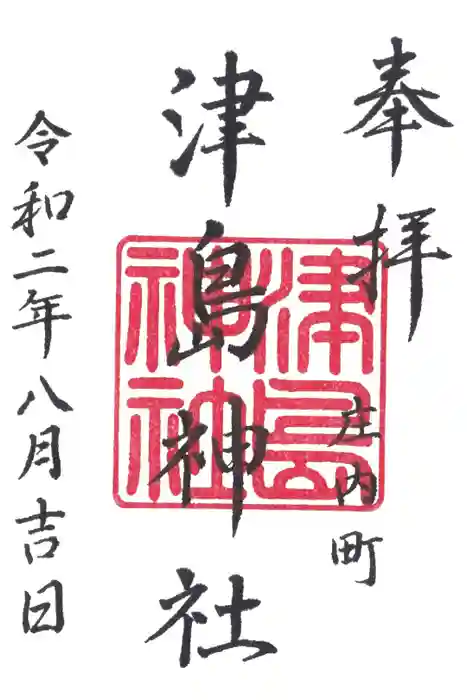 奉拝
庄内町
津島神社
津島神社
令和二年八月吉日